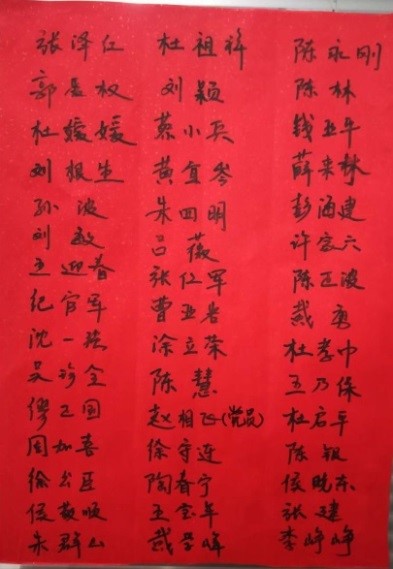 张泽仁 杜祖祥 陈永刚
郭居权 刘颖 陈林
杜媛媛 蔡小兵 钱亚平
刘根生 黄宜岑 薛来林
孙波 朱四明 彭海建
刘敏 吕薇 许富六
王迎春 张仁军 陈正波
纪官军 曹亚君 戴勇
沈一 涂立荣 杜孝中
吴珍全 陈慧 王乃保
缪卫国 赵相飞(党员) 杜启平
周加喜 徐守连 陈银
徐公臣 陶春宁 侯晓东
侯敬顺 王金年 张建
朱群山 戴峰 李峥峥